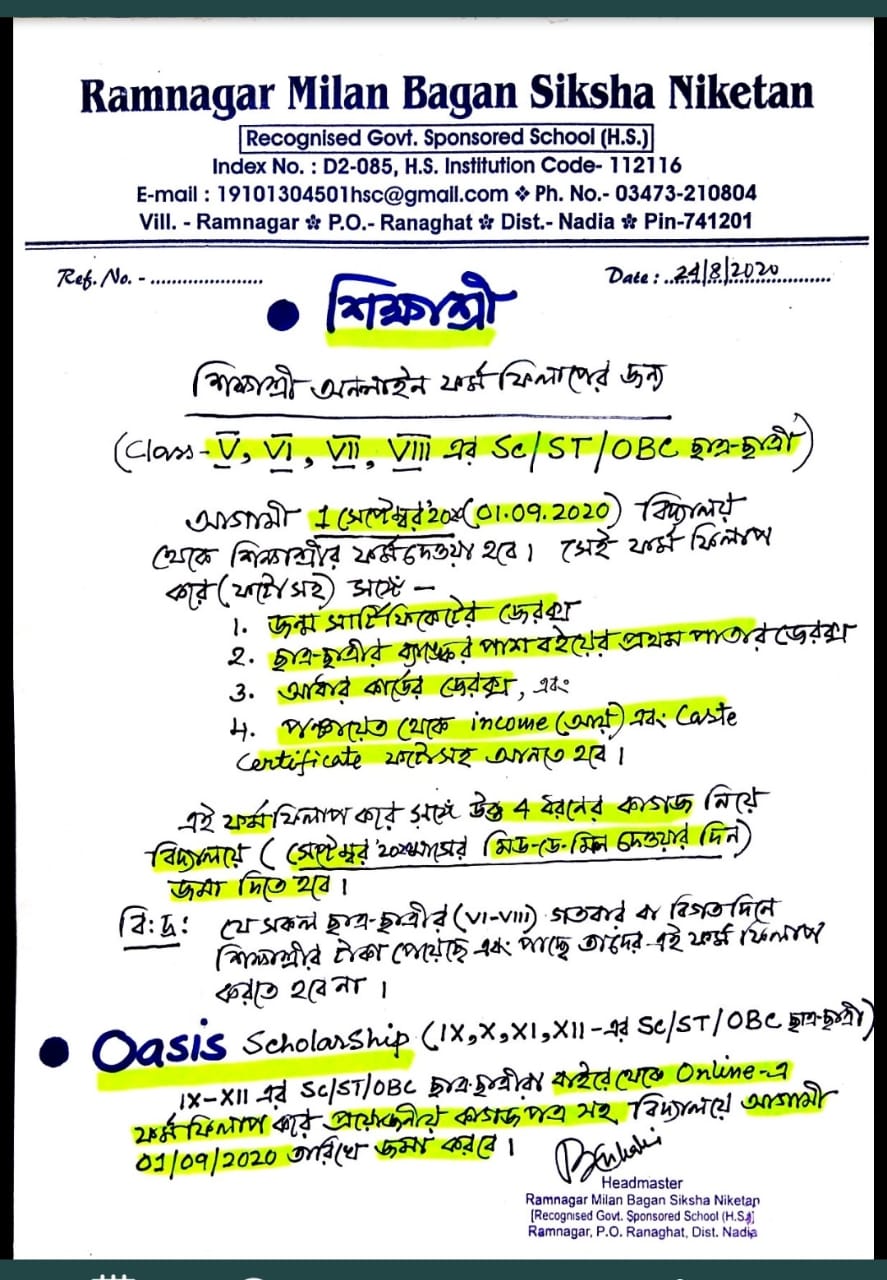 Ramnagar Milan Bagan Siksha Niketan
Recognised Govt. Sponsored School (H.S.)
Index No. : D2-085, H.S. Institution Code- 112116
E-mail : 19101304501hsc@gmail.com ❖ Ph. No.- 03473-210804
Vill. - Ramnagar ✽ P.O.- Ranaghat ✽ Dist.- Nadia ✽ Pin-741201
Ref. No. - ..................... Date : ..24/8/2020............
● শিক্ষাশ্রী
শিক্ষাশ্রী অনলাইন ফর্ম ফিলাপের জন্য
(Class - V, VI, VII, VIII এর SC/ST/OBC ছাত্র-ছাত্রী)
আগামী 1 সেপ্টেম্বর'২০২০ (01.09.2020) বিদ্যালয়
থেকে শিক্ষাশ্রীর ফর্ম দেওয়া হবে। সেই ফর্ম ফিলাপ
করে (ফটো সহ) সঙ্গে —
1. জন্ম সার্টিফিকেটের জেরক্স
2. ছাত্র-ছাত্রীর ব্যাঙ্কের পাশ বইয়ের প্রথম পাতার জেরক্স
3. আধার কার্ডের জেরক্স, এবং
4. পঞ্চায়েত থেকে income (আয়) এবং Caste
Certificate ফটোসহ আনতে হবে।
এই ফর্ম ফিলাপ করে সঙ্গে উক্ত 4 ধরনের কাগজ নিয়ে
বিদ্যালয়ে ( সেপ্টেম্বর '২০২০ মাসের মিড-ডে-মিল দেওয়ার দিন)
জমা দিতে হবে।
বি:দ্র: যে সকল ছাত্র-ছাত্রীর (VI-VIII) গতবার বা বিগত দিনে
শিক্ষাশ্রীর টাকা পেয়েছে এবং পাচ্ছে তাদের এই ফর্ম ফিলাপ
করতে হবে না।
● Oasis Scholarship (IX,X,XI,XII-এর SC/ST/OBC ছাত্র-ছাত্রী)
IX-XII এর SC/ST/OBC ছাত্র-ছাত্রীরা বাইরে থেকে Online-এ
ফর্ম ফিলাপ করে প্রয়োজনীয় কাগজ পত্র সহ বিদ্যালয়ে আগামী
01/09/2020 তারিখে জমা করবে।
Headmaster
Ramnagar Milan Bagan Siksha Niketan
[Recognised Govt. Sponsored School (H.S.)]
Ramnagar, P.O. Ranaghat, Dist. Nadia